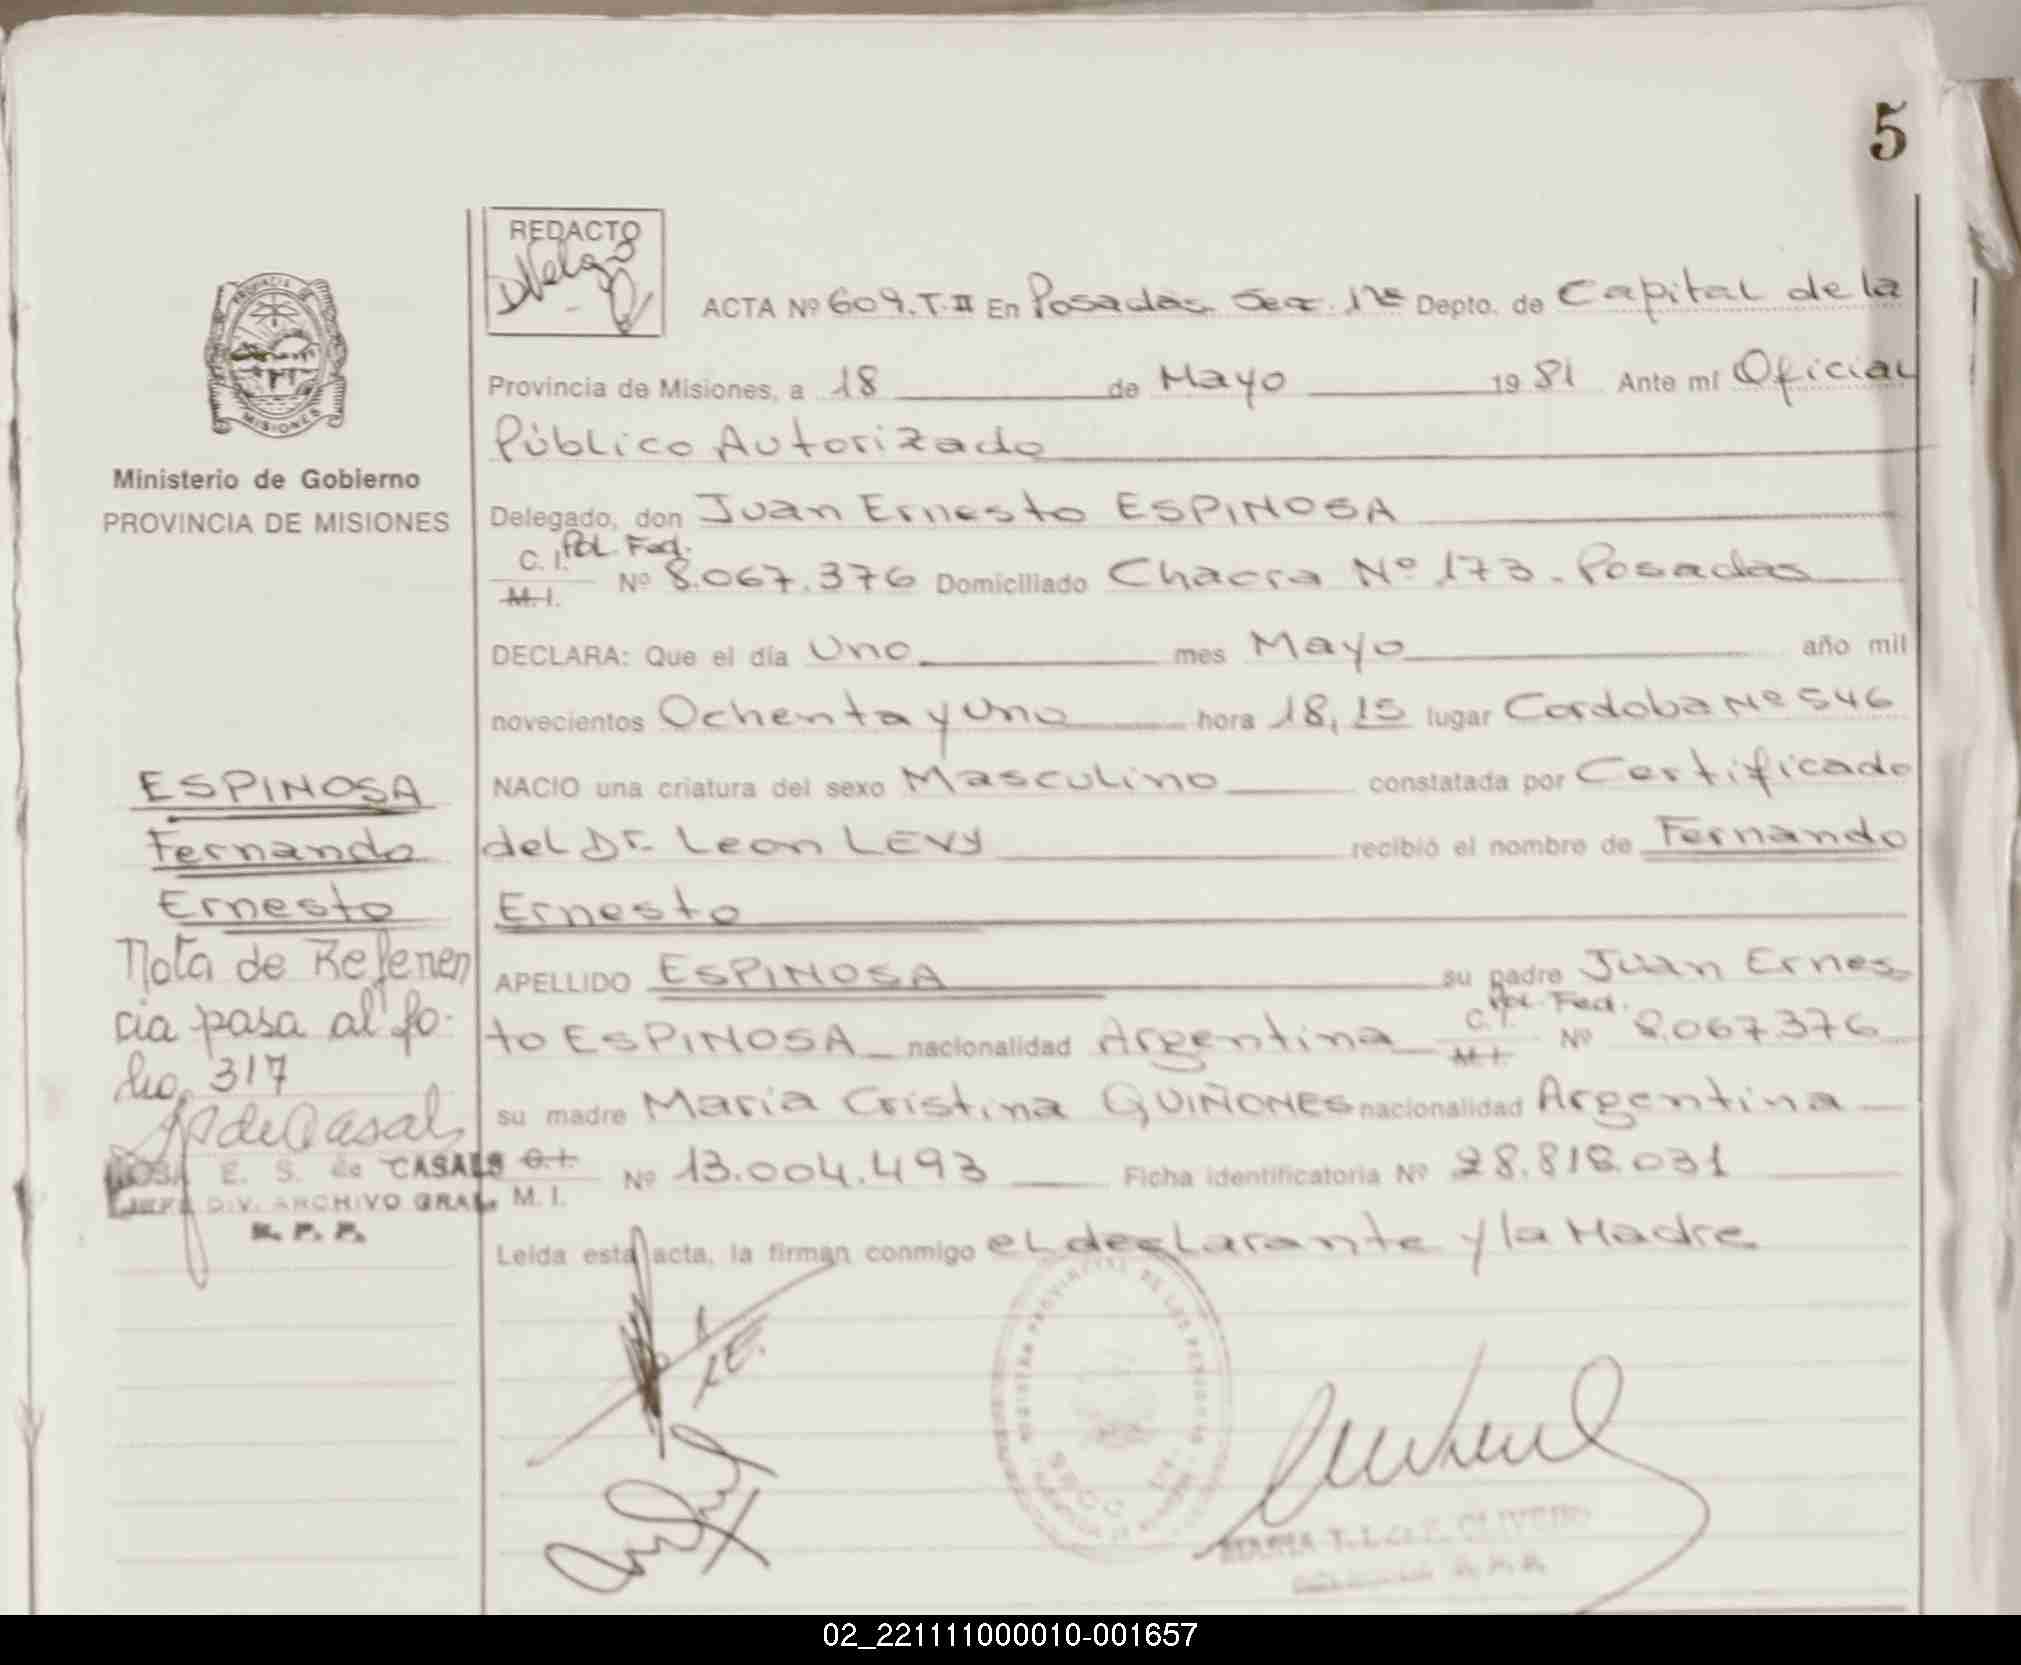 5
REDACTO
PROVINCIA DE
MISIONES
Ministerio de Gobierno
PROVINCIA DE MISIONES
ACTA Nº 609.T.II En Posadas Sec. 1ra Depto. de Capital de la
Provincia de Misiones, a 18 de Mayo 19 81 Ante mí Oficial
Público Autorizado
Delegado, don Juan Ernesto ESPINOSA
C. I. Pol. Fed.
M. I. Nº 8.067.376 Domiciliado Chacra Nº 173 - Posadas
DECLARA: Que el día Uno mes Mayo año mil
novecientos Ochenta y Uno hora 18,15 lugar Cordoba Nº 546
NACIO una criatura del sexo Masculino constatada por Certificado
del Dr. Leon LEVY recibió el nombre de Fernando
Ernesto
APELLIDO ESPINOSA su padre Juan Ernes
to ESPINOSA nacionalidad Argentina C. I. Pol. Fed. M. I. Nº 8.067.376
su madre Maria Cristina QUIÑONES nacionalidad Argentina
C. I. M. I. Nº 13.004.493 Ficha identificatoria Nº 28.818.031
Leída esta acta, la firman conmigo el declarante y la Madre
ESPINOSA
Fernando
Ernesto
Nota de Referen
cia pasa al fo-
lio 317
de Casals
ROSA E. S. de CASALS
JEFE DIV. ARCHIVO GRAL.
R. P. P.
REGISTRO PROVINCIAL DE LAS PERSONAS
SECC
OLIVEIRO
02_221111000010-001657